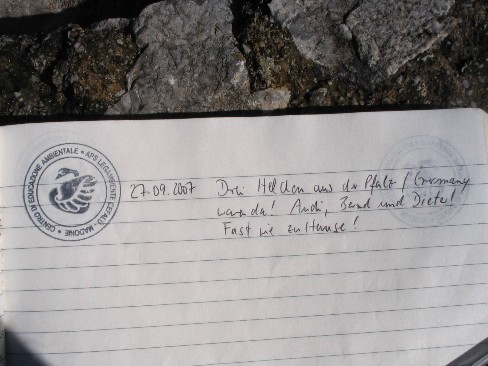 CENTRO DI EDUCAZIONE AMBIENTALE • APS LEGAMBIENTE CEFALÙ - MADONIE •
27.09.2007 Drei Helden aus der Pfalz / Germany
waren da! Andi, Bernd und Dieter!
Fast wie zuHause!